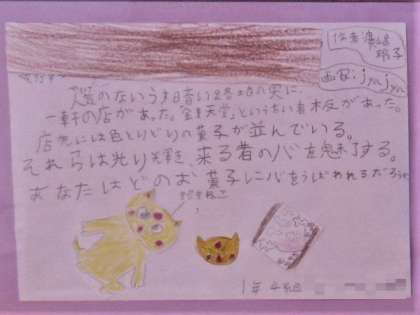 作者 廣嶋
玲子
画家:jyajya
人気のないうす暗い路地の奥に、
一軒の店があった。「銭天堂」という 看板があった。
店先には色とりどりの菓子が並んでいる。
それらは光り輝き、来る者の心を魅了する。
あなたはどのお菓子に心をうばわれるだろうか
1年4組